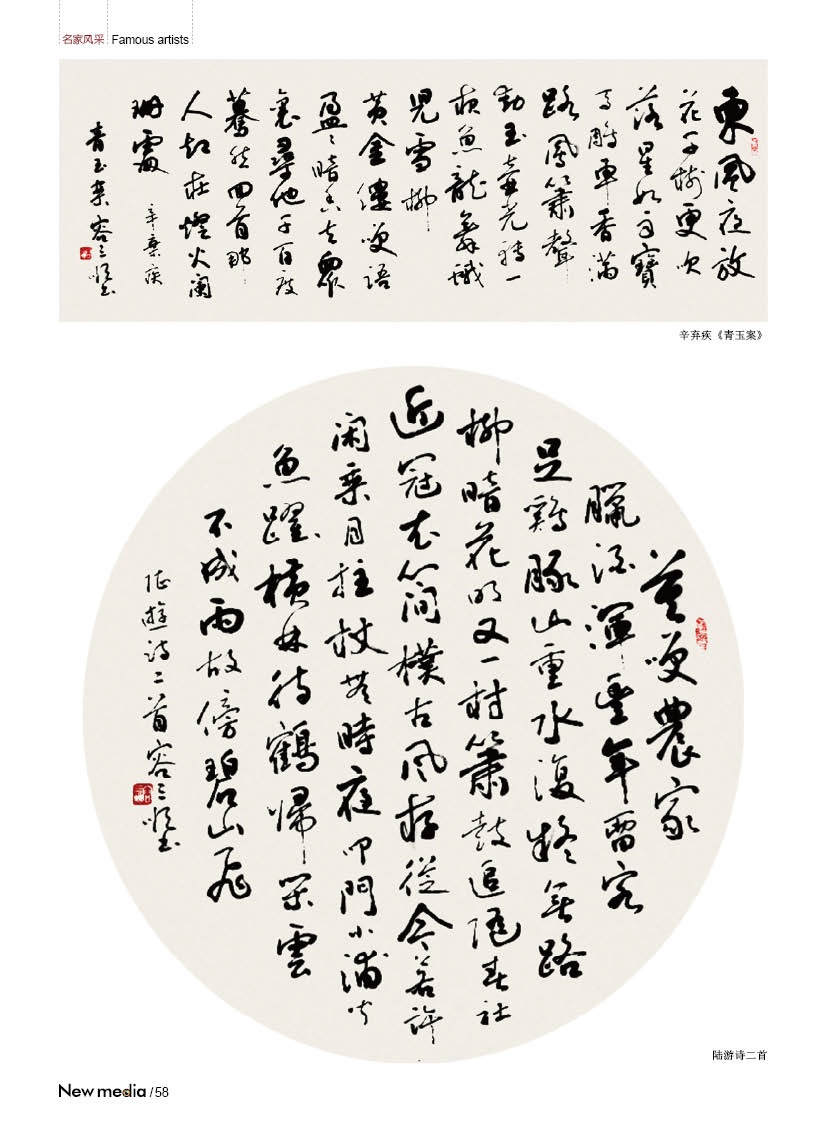 名家风采 Famous artists
東風夜放
花千樹更吹
落星如雨寶
馬雕車香滿
路鳳簫聲
動玉壺光轉一
夜魚龍舞蛾
兒雪柳
黃金縷笑語
盈〻暗香去眾
裏尋他千百度
驀然回首那
人卻在燈火闌
珊處
辛棄疾
青玉案 容
辛弃疾《青玉案》
莫笑農家
臘酒渾豐年留客
足雞豚山重水復疑無路
柳暗花明又一村簫鼓追隨春社
近冠衣簡樸古風存從今若許
閑乘月拄杖無時夜叩門小浦聞
魚躍橫林待鶴歸閑雲
不成雨故傍碧山飛
陸遊詩二首 容
陆游诗二首
New media /58